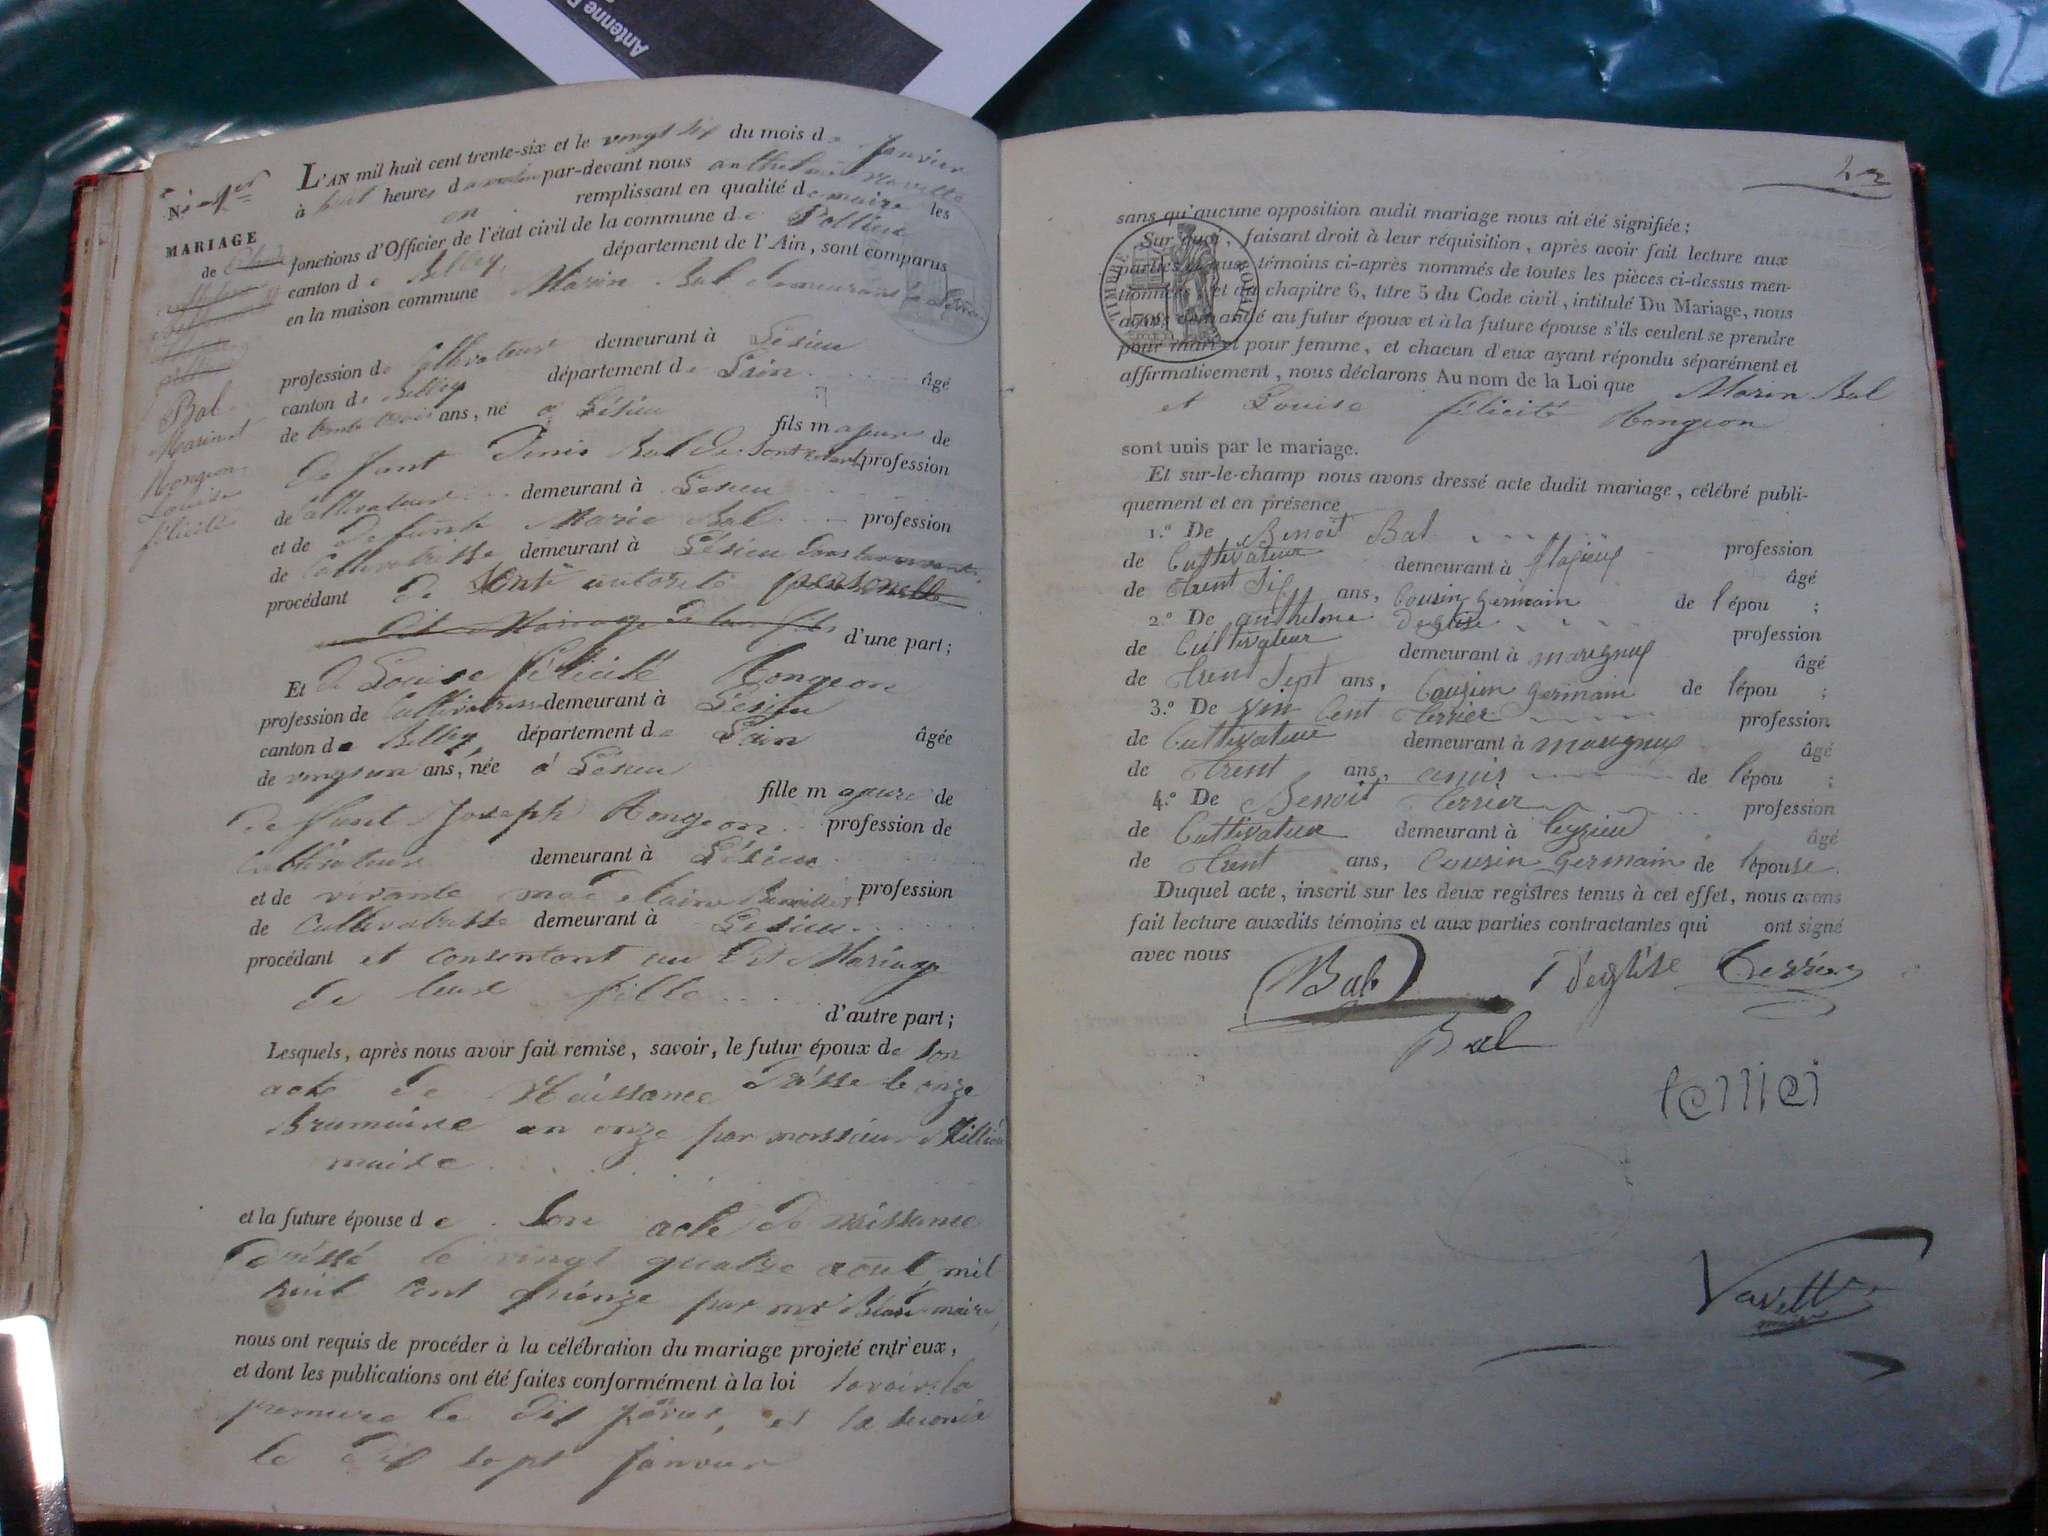 Antenne
N.º 1er
MARIAGE
de
Bal
Marin et
Rongeon
Louise
félicité
L'AN mil huit cent trente-six et le vingt six du mois de Janvier
à huit heures du matin par-devant nous anthelme Navette
en remplissant en qualité de maire les
fonctions d'Officier de l'état civil de la commune de Pollieu
canton de Belley, département de l'Ain, sont comparus
en la maison commune Marin Bal
profession de Cultivateur demeurant à Lésieu
canton de Belley département de Lain âgé
de trente trois ans, né à Lésieu
fils majeur de
defunt Denis Bal de profession
de Cultivateur demeurant à Lesieu
et de defunte Marie Bal profession
de Cultivatrisse demeurant à Lésieu
procédant de autorité personelle
dit Mariage de leur fils d'une part;
Et de Louise félicité Rongeon
profession de Cultivatrisse demeurant à Lésieu
canton de Belley département de Lain âgée
de vingt un ans, née à Lésieu
fille majeure de
defunt Joseph Rongeon profession de
Cultivateur demeurant à Lésieu
et de vivante madelaine profession
de Cultivatrisse demeurant à Lesieu
procédant et consentant au dit Mariage
de leur fille
d'autre part;
Lesquels, après nous avoir fait remise, savoir, le futur époux de son
acte de Naissance drésse le onze
Brumaire an onze par monsieur
maire
et la future épouse de son acte de naissance
dréssé le vingt quatre août mil
huit cent quinze par mr maire,
nous ont requis de procéder à la célébration du mariage projeté entr'eux,
et dont les publications ont été faites conformément à la loi savoir la
premiere le dix janvier, et la seconde
le dix sept janvier
2
sans qu'aucune opposition audit mariage nous ait été signifiée;
Sur quoi, faisant droit à leur réquisition, après avoir fait lecture aux
parties et aux témoins ci-après nommés de toutes les pièces ci-dessus men-
tionnées, et du chapitre 6, titre 5 du Code civil, intitulé Du Mariage, nous
avons demandé au futur époux et à la future épouse s'ils veulent se prendre
pour mari et pour femme, et chacun d'eux ayant répondu séparément et
affirmativement, nous déclarons Au nom de la Loi que Marin Bal
et Louise félicité Rongeon
sont unis par le mariage.
Et sur-le-champ nous avons dressé acte dudit mariage, célébré publi-
quement et en présence
1.º De Benoit Bal profession
de Cultivateur demeurant à flaxieux âgé
de trent six ans, Cousin germain de l'épou ;
2.º De anthelme deglise profession
de Cultivateur demeurant à marignieu âgé
de trent sept ans, Cousien germain de l'épou ;
3.º De vin Cent terrier profession
de Cultivateur demeurant à marignieu âgé
de trent ans, amis de l'épou ;
4.º De Benoit terrier profession
de Cultivateur demeurant à leyzieu âgé
de trent ans, Cousin germain de l'épouse.
Duquel acte, inscrit sur les deux registres tenus à cet effet, nous avons
fait lecture auxdits témoins et aux parties contractantes qui ont signé
avec nous
Bal Déglise terrier
Bal
terrier
Navette
maire
TIMBRE ROYAL